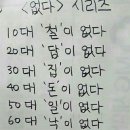 <없다> 시리즈
10대 '철'이 없다
20대 '답'이 없다
30대 '집'이 없다
40대 '돈'이 없다
50대 '일'이 없다
60대 '낙'이 없다